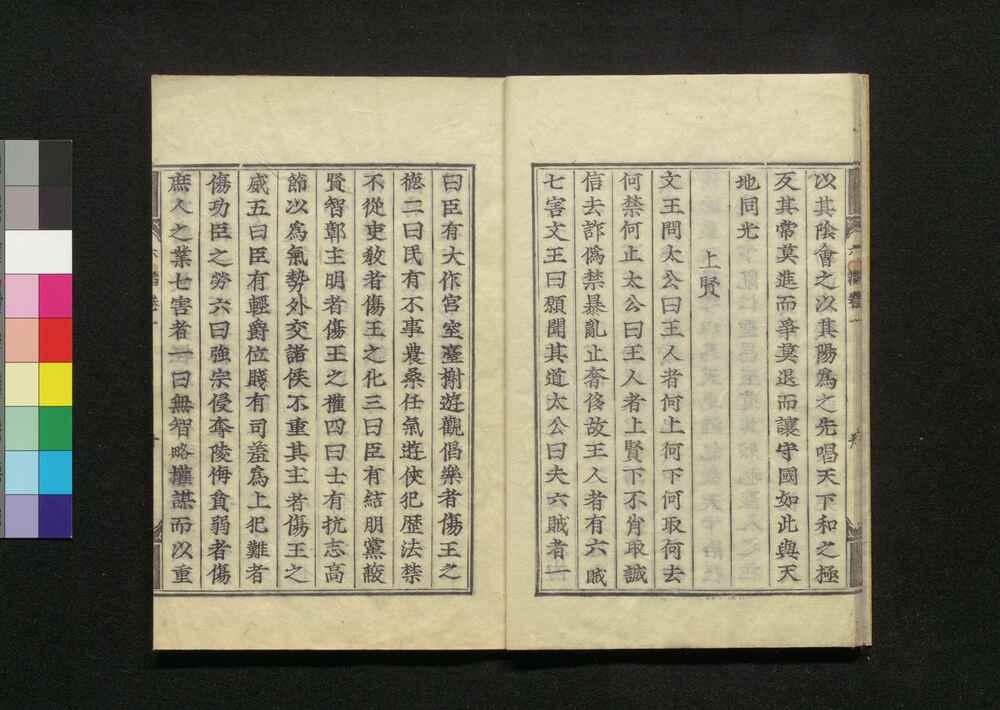 以其陰會之以其陽爲之先唱天下和之極
反其常莫進而爭莫退而讓守國如此與天
地同光
上賢
文王問太公曰王人者何上何下何取何去
何禁何止太公曰王人者上賢下不肖取誠
信去詐僞禁暴亂止奢侈故王人者有六賊
七害文王曰願聞其道太公曰夫六賊者一
曰臣有大作宮室臺榭遊觀倡樂者傷王之
德二曰民有不事農桑任氣遊俠犯歷法禁
不從吏敎者傷王之化三曰臣有結朋黨蔽
賢智鄣主明者傷王之權四曰士有抗志高
節以爲氣勢外交諸侯不重其主者傷王之
威五曰臣有輕爵位賤有司羞爲上犯難者
傷功臣之勞六曰強宗侵奪陵侮貧弱者傷
庶人之業七害者一曰無智略權謀而以重